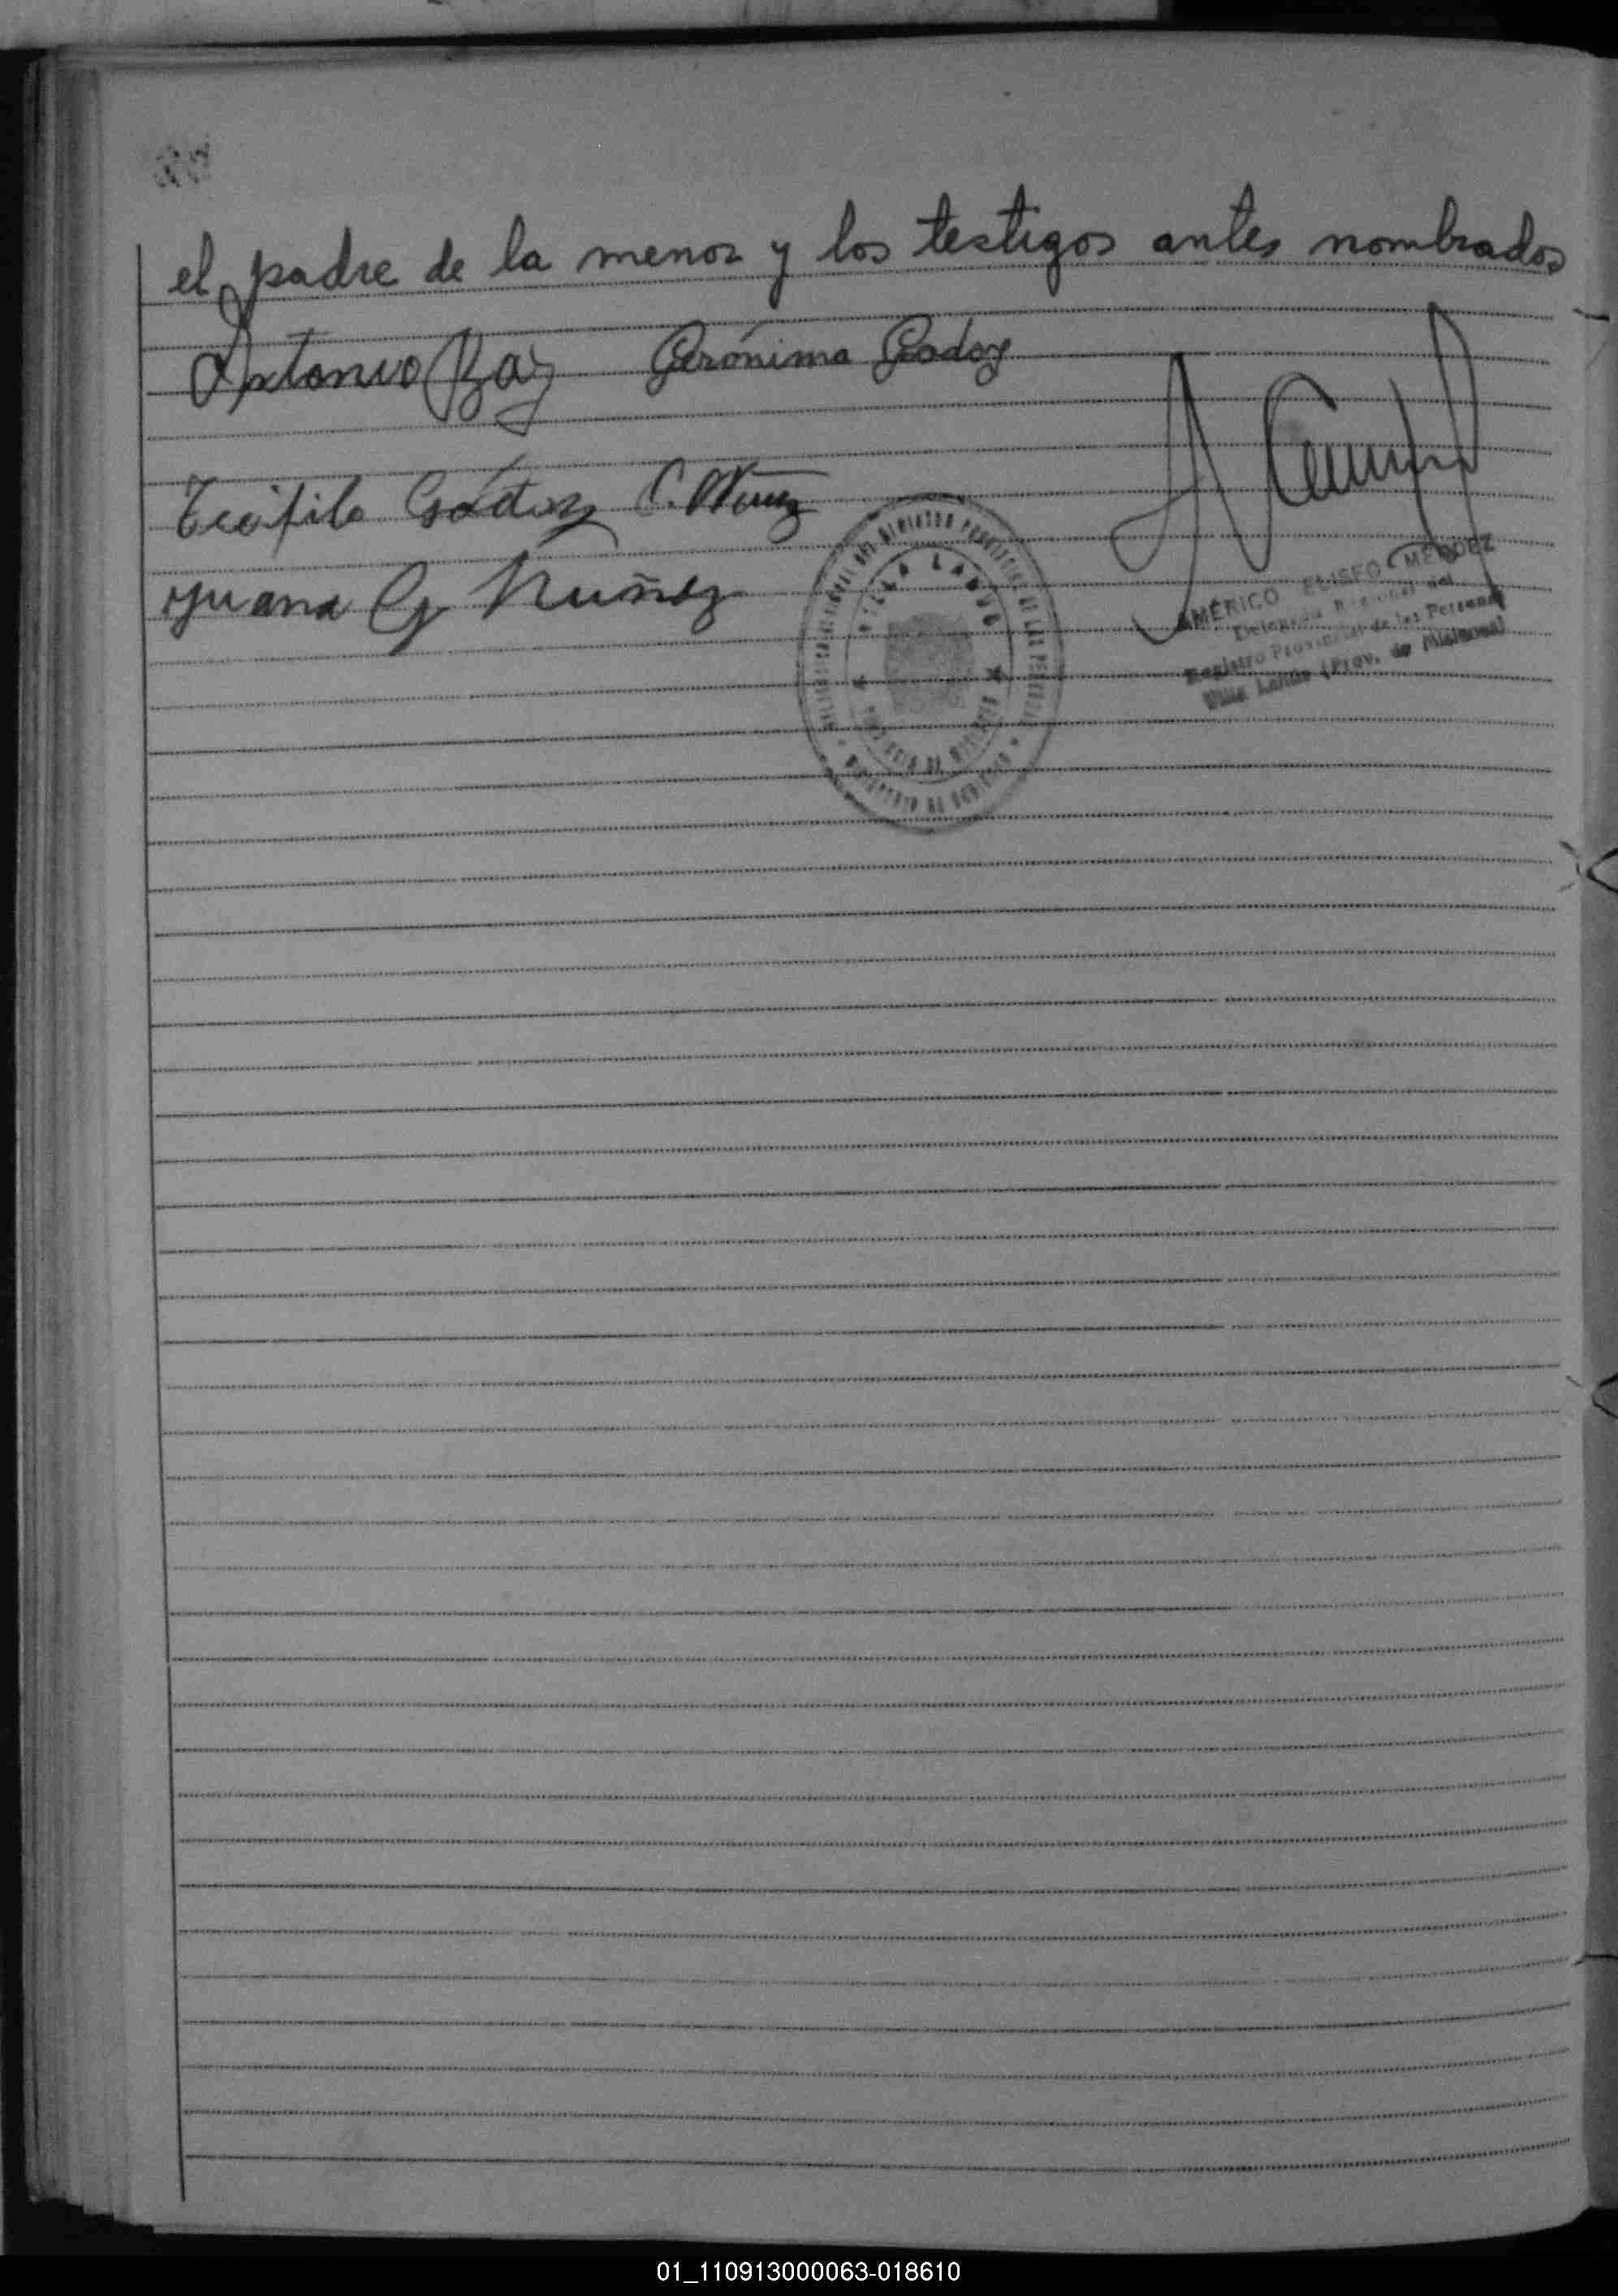 el padre de la menor y los testigos antes nombrados
Antonio Baz Gerónima Godoy
Teófilo Godoy C. Nuñez
Juana G Nuñez
VILLA LANUS
MINISTERIO DE GOBIERNO
AMÉRICO ELISEO MENDEZ
Delegado Regional del
Registro Provincial de las Personas
Villa Lanús (Prov. de Misiones)
01_110913000063-018610